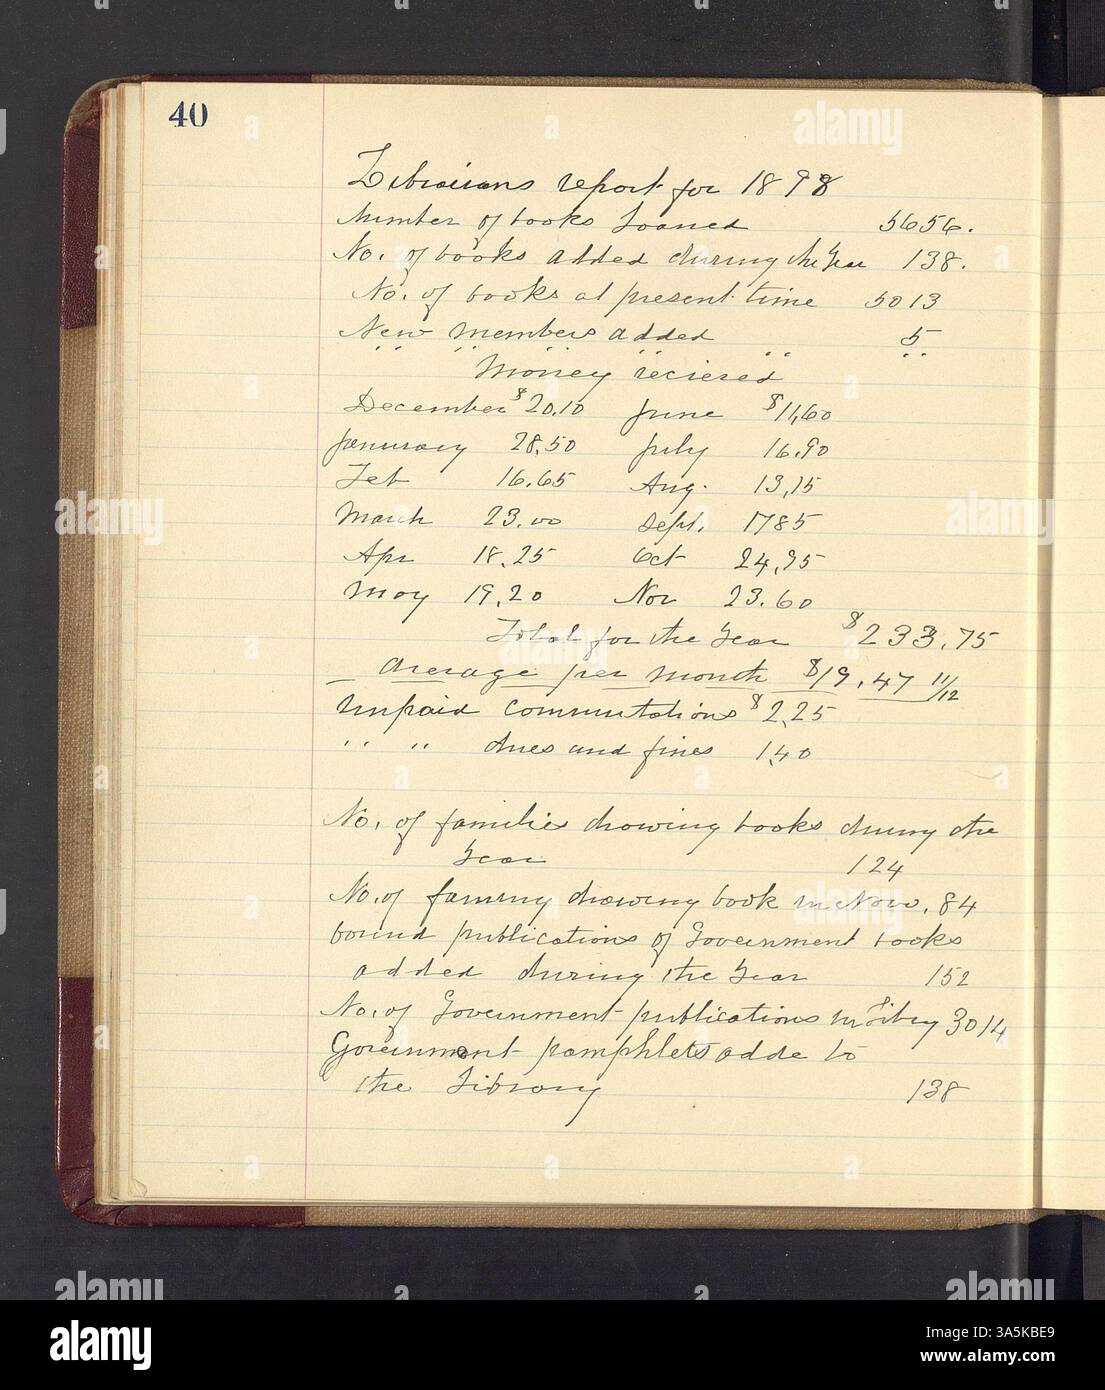 40
Librarians report for 1898
Number of books Loaned 5656.
No. of books added during the Year 138.
No. of books at present time 5013
New members added 5
" " " " " " "
Money recieved
December $20.10 June $11,60
January 28.50 July 16.90
Feb 16.65 Aug. 13,15
March 23.00 Sept. 1785
Apr 18.25 Oct 24,95
May 19.20 Nov 23.60
Total for the Year $233.75
Average per month $19.47 11/12
Unpaid commutations $2.25
" " dues and fines 1.40
No. of families drowing books during the
Year 124
No. of faminy drowing book in Nov. 84
bound publications of Government books
added during the Year 152
No. of Government publications in Libry 3014
Government pamphlets adde to
the Library 138
alamy
Image ID: 3A5KBE9
www.alamy.com